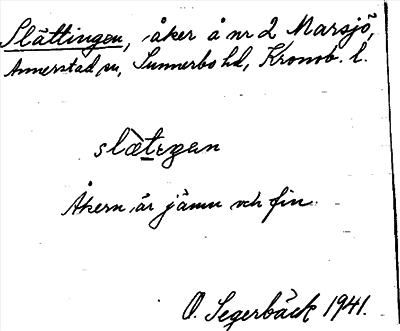 Slättingen, åker å nr 2 Marsjö,
Annerstad sn, Sunnerbo hd, Kronob. l.
slæ̀tıŋan
Åkern är jämn och fin.
O. Segerbäck 1941.